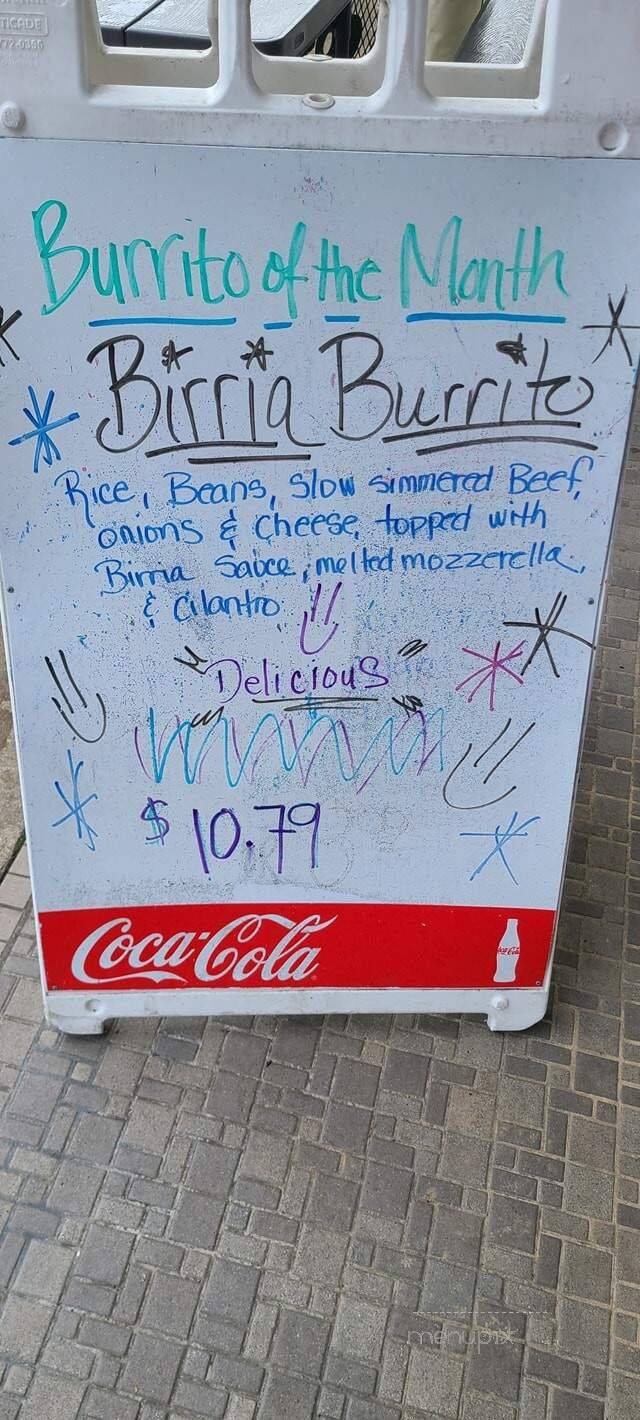 TICADE
772-0350
Burrito of the Month
Birria Burrito
Rice, Beans, Slow simmered Beef,
onions & Cheese, topped with
Birria Sauce, melted mozzerella,
& Cilantro
Delicious
$ 10.79
Coca-Cola
Coca-Cola
menupix